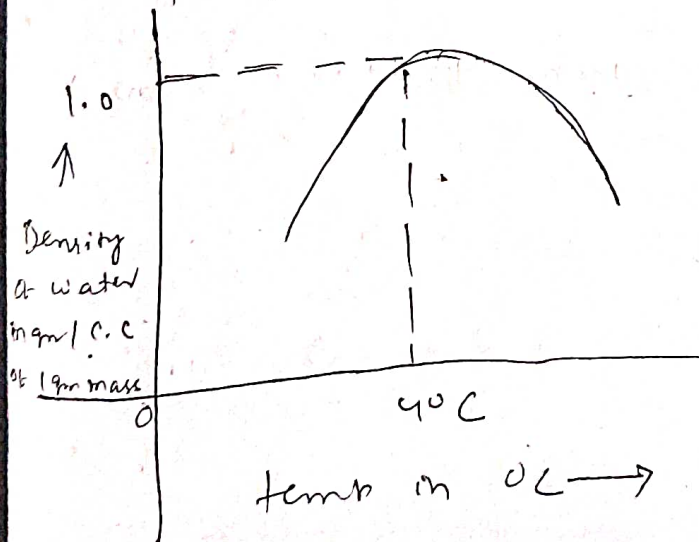 1.0
↑
Density
of water
in gm/ C.C
of 1 gm mass
0
4°C
temp in °C →